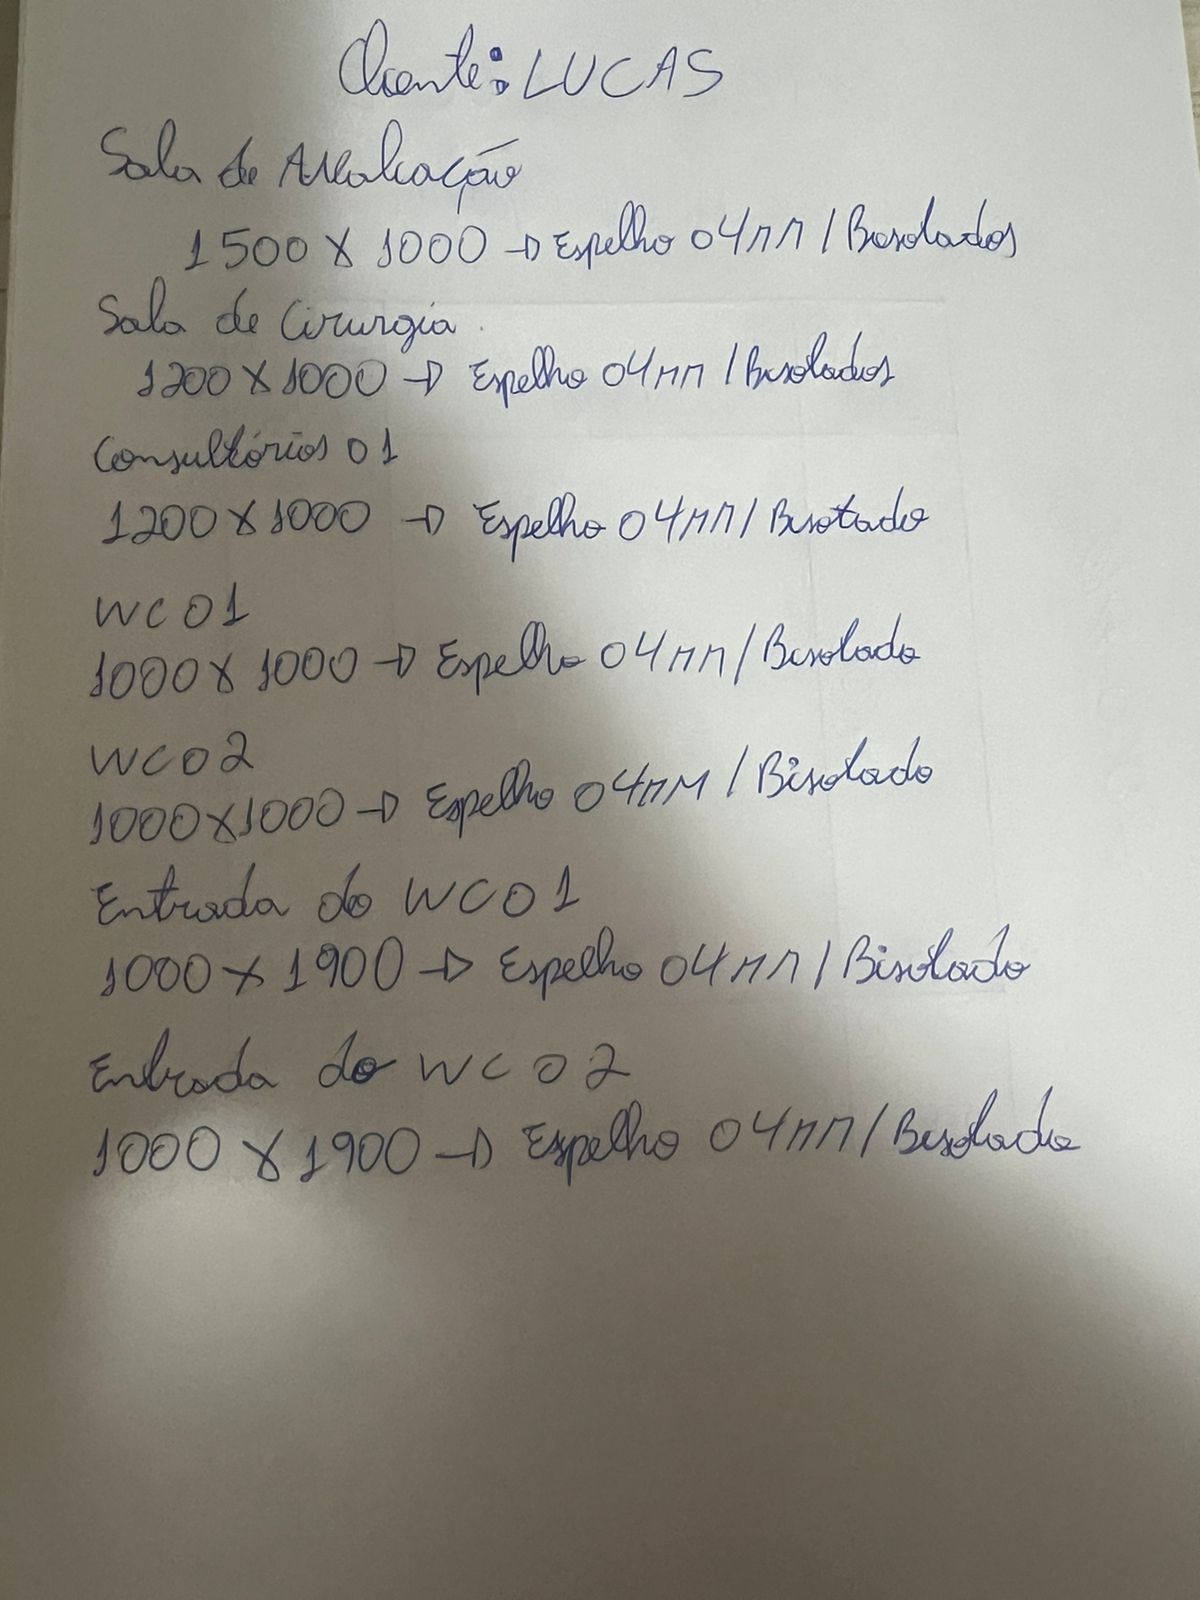 Cliente: LUCAS
Sala de Avaliação
1500 X 1000 → Espelho 04mm / Bisotados
Sala de Cirurgia
1200 X 1000 → Espelho 04mm / Bisotados
Consultórios 01
1200 X 1000 → Espelho 04mm / Bisotado
WC01
1000 X 1000 → Espelho 04mm / Bisotado
WC02
1000 X 1000 → Espelho 04mm / Bisotado
Entrada do WC01
1000 X 1900 → Espelho 04mm / Bisotado
Entrada do WC02
1000 X 1900 → Espelho 04mm / Bisotado